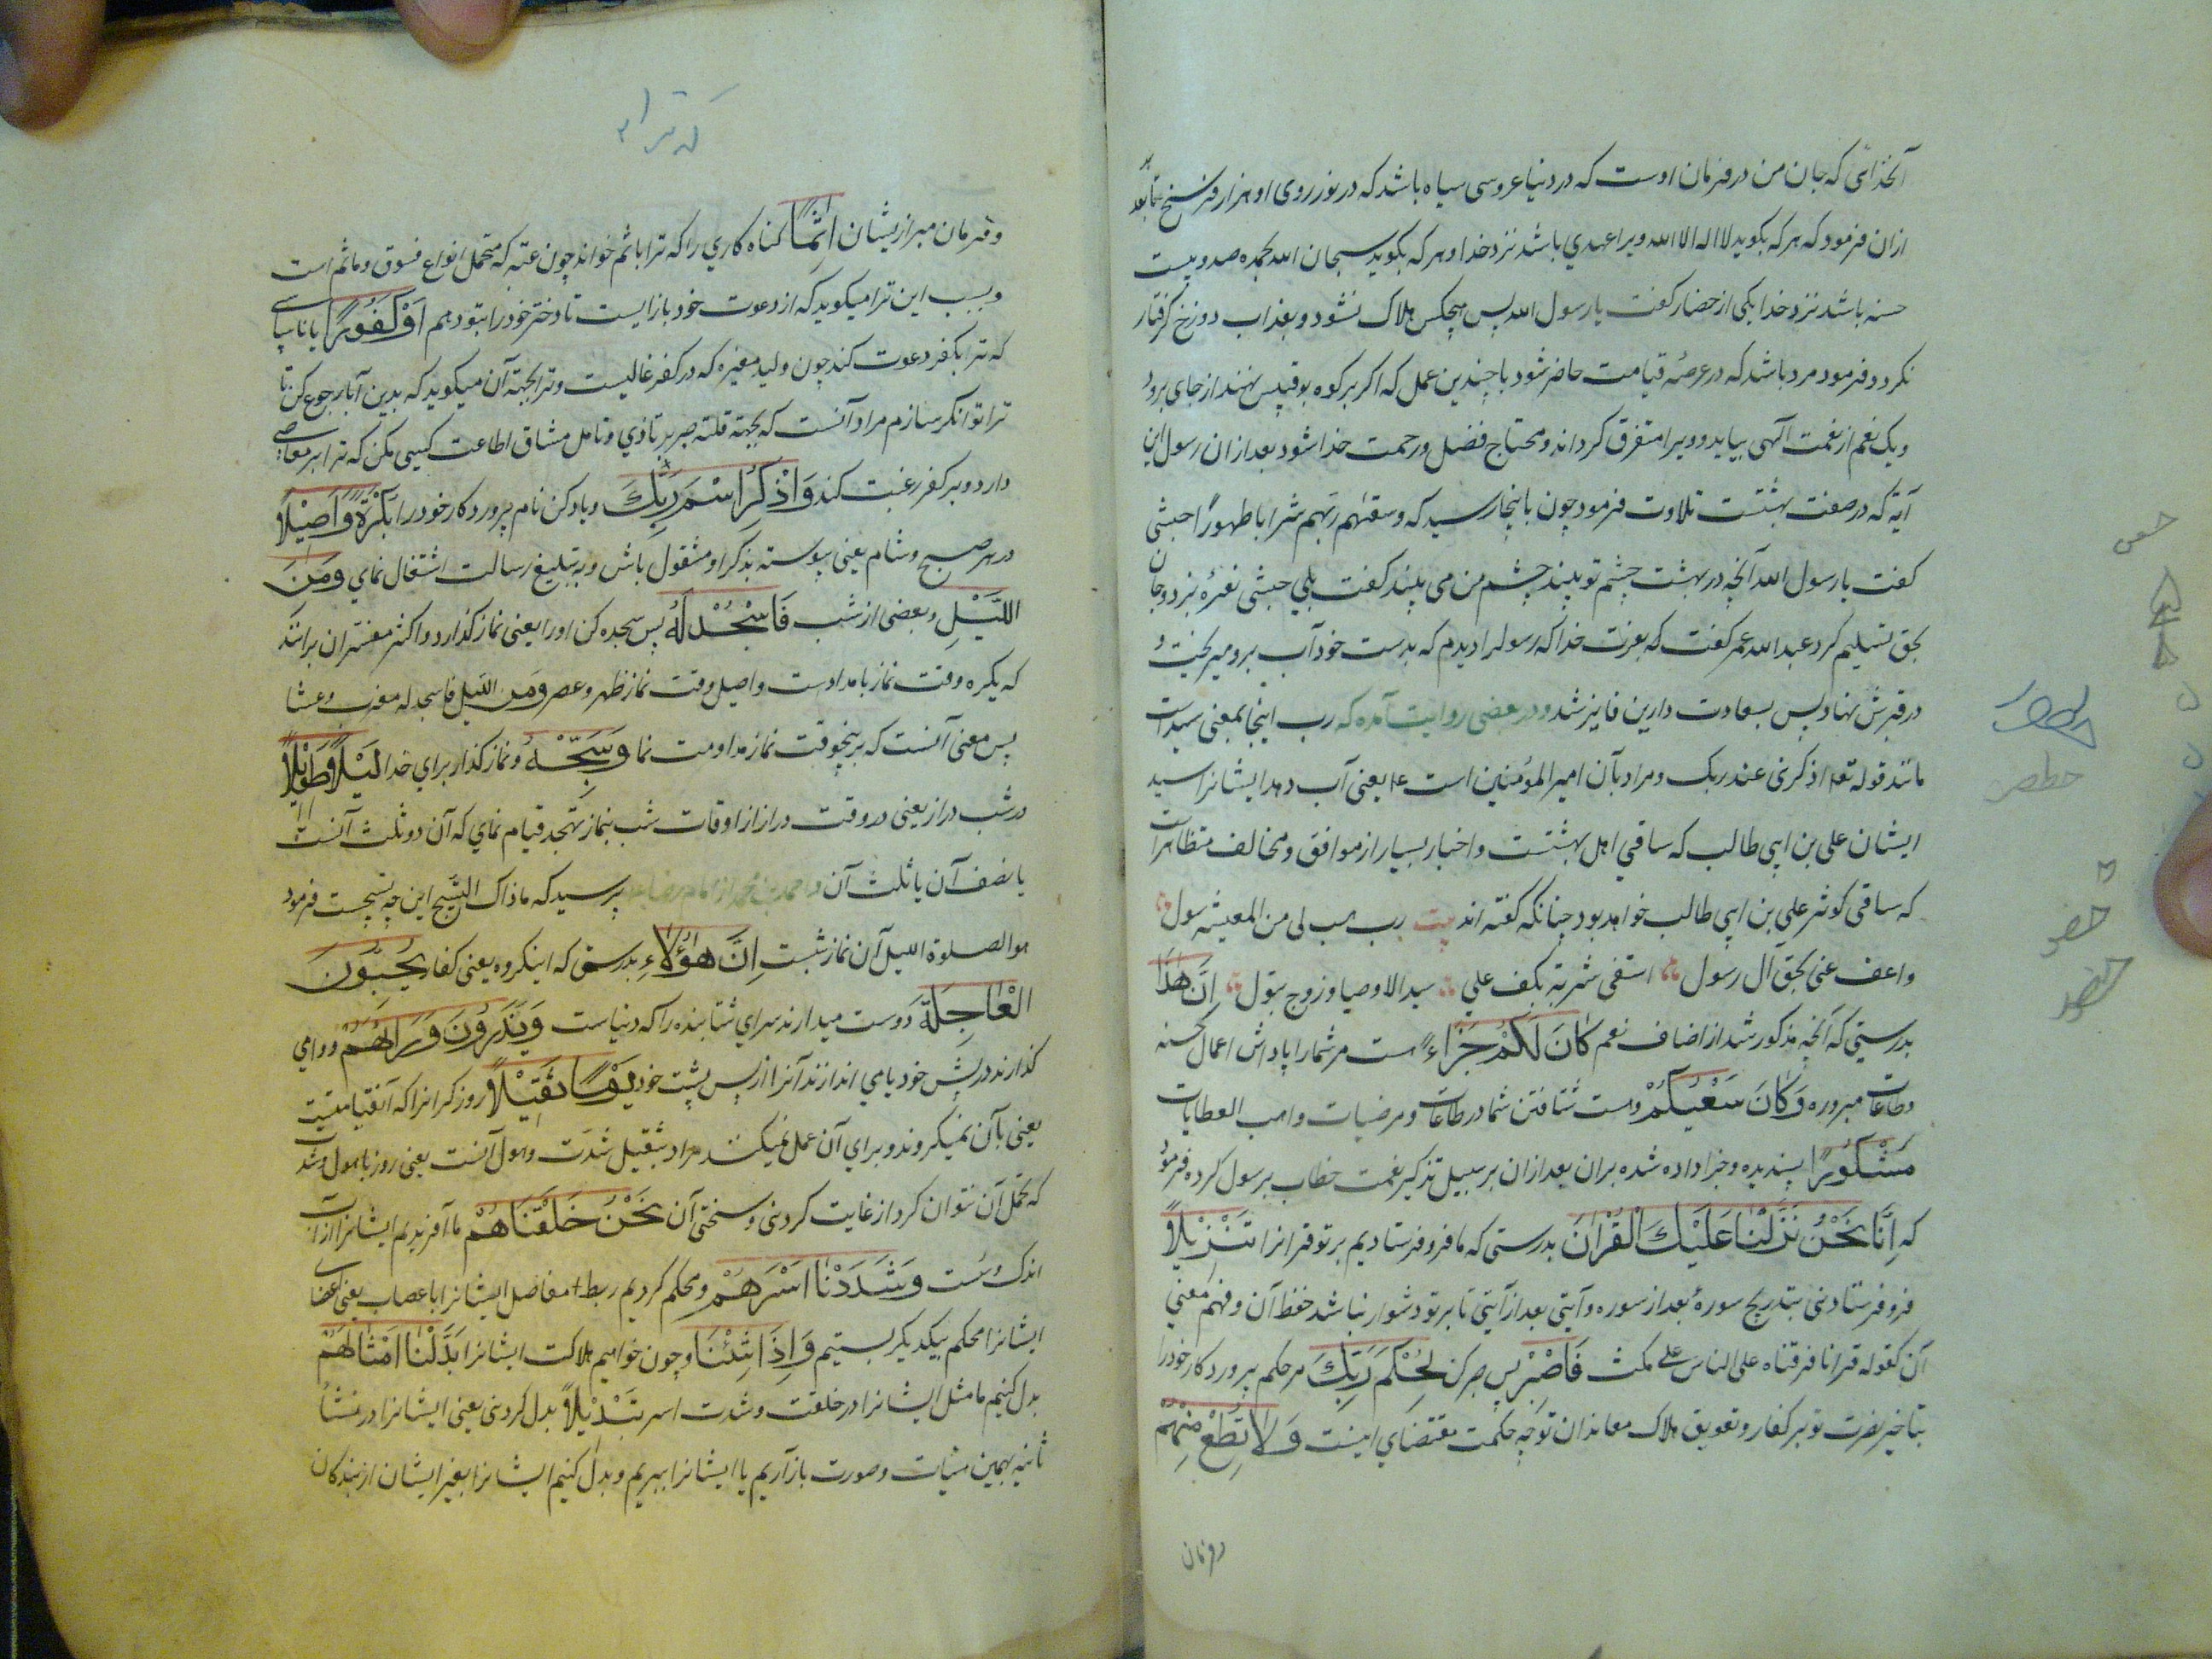 آنخدائی که جان من در فرمان اوست که در دنیا عروسی سیاه باشد که در نور روی او هزار فرسخ بتابد بعد
ازان فرمود که هر که بکوید لا اله الا الله ویرا عهدی باشد نزد خدا و هر که بکوید سبحان الله بحمده صد و بیست
حسنه باشد نزد خدا یکی از حضار کفت یا رسول الله پس هیچکس هلاک نشود و بعذاب دوزخ کرفتار
نکردد فرمود مرد باشد که در عرصهٔ قیامت حاضر شود با چندین عمل که اکر بر کوه بوقبیس نهند از جای برود
و یک نعم از نعمت آلهی بیاید و ویرا متفرق کرداند و محتاج فضل و رحمت خدا شود بعد ازان رسول این
آیه که در صفت بهشتست تلاوت فرمود چون باینجا رسید که وسقیهم ربهم شرابا طهورًا حبشی
کفت یا رسول الله آنچه در بهشت چشم تو بیند چشم من می بیند کفت بلی حبشی نعرهٔ بزد و جان
بحق تسلیم کرد عبد الله عمر کفت که بعزت خدا که رسولرا دیدم که بدست خود آب برو میریخت و
در قبرش نهاد پس بسعادت دارین فایز شد و در بعضی روایت آمده که رب اینجا بمعنی سیدات
مانند قوله تعا اذکرنی عند ربک و مراد بآن امیر المؤمنین است ع یعنی آب دهد ایشانرا سید
ایشان علی بن ابی طالب که ساقی اهل بهشتست و اخبار بسیار از موافق و مخالف متظاهرات
که ساقی کوثر علی بن ابی طالب خواهد بود چنانکه کفته اند بیت رب هب لی من المعیشه سول
واعف عنی بحق آل رسول اسقنی شربة بکف علی سید الاوصیا و زوج بتول اِنَّ هٰذَا
بدرستی که آنچه مذکور شد از اضاف نعم كَانَ لَكُمْ جَزَاءً هست مر شما را پاداش اعمال حسنه
و طاعات مبروره وَكَانَ سَعْيُكُمْ و هست شتافتن شما در طاعات و مرضیات واهب العطایات
مَشْكُورًا پسندیده و جزا داده شده بران بعد ازان بر سبیل تذکیر نعمت خطاب برسول کرده فرمود
که اِنَّا نَحْنُ نَزَّلْنَا عَلَيْكَ الْقُرْاٰنَ بدرستی که ما فرو فرستادیم بر تو قرانرا تَنْزِيْلًا
فرو فرستادنی بتدریج سورهٔ بعد از سوره و آیتی بعد از آیتی تا بر تو دشوار نباشد حفظ آن و فهم معنی
آن کقوله قرانا فرقناه علی الناس علی مکث فَاصْبِرْ پس صبر کن لِحُكْمِ رَبِّكَ مر حکم پروردکار خود را
بتاخیر نصرت تو بر کفار و تعویق هلاک معاندان تو چه حکمت مقتضای اینست وَلَا تُطِعْ مِنْهُمْ
و فرمان مبر از یشان اٰثِمًا کناه کاری را که ترا باثم خواند چون عتبه که متحمل انواع فسوق و ماثم است
و بسبب این ترا میکوید که از دعوت خود باز ایست تا دختر خود را بتو دهم اَوْ كَفُوْرًا یا ناسپاسی
که ترا بکفر دعوت کند چون ولید مغیره که در کفر غالیست و ترا بجهة آن میکوید که بدین آبا رجوع کن تا
ترا توانکر سازم مراد آنست که بجهة قلت صبر بر تاذی و تامل مشاق اطاعت کسی مکن که ترا بر معاصی
دارد و بر کفر رغبت کند وَاذْكُرِ اسْمَ رَبِّكَ و یاد کن نام پروردکار خود را بُكْرَةً وَاَصِيْلًا
در هر صبح و شام یعنی پیوسته بذکر او مشغول باش و بر تبلیغ رسالت اشتغال نمای وَمِنَ
اللَّيْلِ و بعضی از شب فَاسْجُدْ لَهُ پس سجده کن او را یعنی نماز کذار و اکثر مفسران برانند
که بکره وقت نماز بامداد ست و اصیل وقت نماز ظهر و عصر و من اللیل فاسجد له مغرب و عشا
پس معنی آنست که بر پنجوقت نماز مداومت نما وَسَبِّحْهُ و نماز کذار برای خدا لَيْلًا طَوِيْلًا
در شب دراز یعنی در وقت دراز از اوقات شب بنماز تهجد قیام نمای که آن دو ثلث آنست
یا نصف آن یا ثلث آن و احمد بن محمد از امام رضا پرسید که ما ذاک التسبیح این چه تسبیحست فرمود
هو الصلوة اللیل آن نماز شبست اِنَّ هٰؤُلَاءِ بدرستی که اینکروه یعنی کفار يُحِبُّوْنَ
الْعَاجِلَةَ دوست میدارند سرای شتابنده را که دنیاست وَيَذَرُوْنَ وَرَاءَهُمْ و وامی
کذارند در پش خود یا می اندازند آنرا از پس پشت خود يَوْمًا ثَقِيْلًا روز کرانرا که آنقیامتست
یعنی بآن نمیکروند و برای آن عمل نمیکنند مراد بثقیل شدت و هول آنست یعنی روز باهول و شدت
که تحمل آن نتوان کرد از غایت کردنی و سختی آن نَحْنُ خَلَقْنَاهُمْ ما آفریدیم ایشانرا از آب
اندک سست وَشَدَدْنَا اَسْرَهُمْ و محکم کردیم ربط مفاصل ایشانرا با عصاب یعنی اعضای
ایشانرا محکم بیکدیکر بستیم وَاِذَا شِئْنَا و چون خواهیم هلاکت ایشانرا بَدَّلْنَا اَمْثَالَهُمْ
بدل کنیم ما مثل ایشانرا در خلقت و شدت اسر تَبْدِيْلًا بدل کردنی یعنی ایشانرا در نشأ
ثانیه بهمین هیات و صورت باز آریم یا ایشانرا ببریم و بدل کنیم ایشانرا بغیر ایشان از بندکان